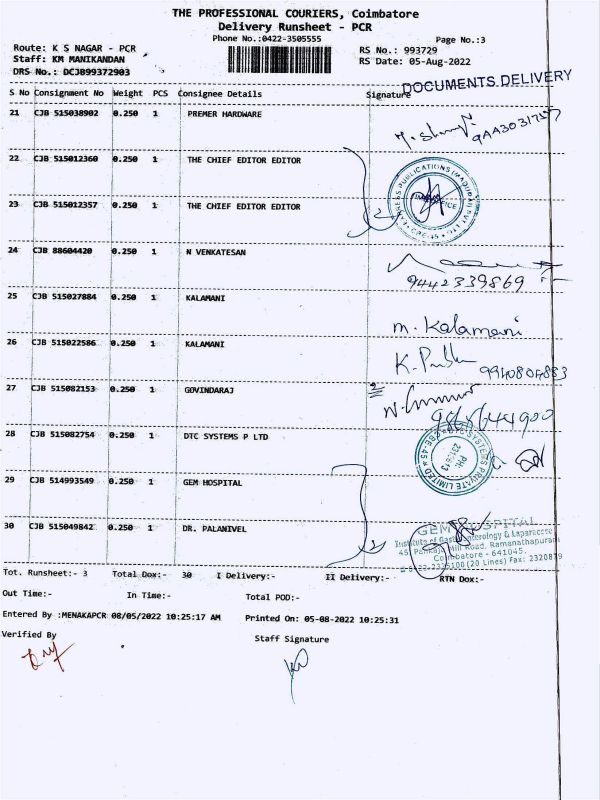 THE PROFESSIONAL COURIERS, Coimbatore
Delivery Runsheet - PCR
Phone No.:0422-3505555
Page No.:3
Route: K S NAGAR - PCR
RS No.: 993729
Staff: KM MANIKANDAN
RS Date: 05-Aug-2022
DRS No.: DCJ899372903
DOCUMENTS DELIVERY
S No Consignment No Weight PCS Consignee Details Signature
21 CJB 515038902 0.250 1 PREMER HARDWARE
22 CJB 515012360 0.250 1 THE CHIEF EDITOR EDITOR
23 CJB 515012357 0.250 1 THE CHIEF EDITOR EDITOR
24 CJB 88604420 0.250 1 N VENKATESAN
9442339869
25 CJB 515027884 0.250 1 KALAMANI
m. Kalamani
26 CJB 515022586 0.250 1 KALAMANI
9940804883
27 CJB 515082153 0.250 1 GOVINDARAJ
28 CJB 515082754 0.250 1 DTC SYSTEMS P LTD
DTC SYSTEMS PRIVATE LIMITED CBE-45
29 CJB 514993549 0.250 1 GEM HOSPITAL
30 CJB 515049842 0.250 1 DR. PALANIVEL
GEM HOSPITAL
Institute of Gastroenterology & Laparoscopic
45, Pankaja Mill Road, Ramanathapuram
Coimbatore - 641045.
(20 Lines) Fax: 2320879
Tot. Runsheet:- 3 Total Dox:- 30 I Delivery:- II Delivery:- RTN Dox:-
Out Time:- In Time:- Total POD:-
Entered By :MENAKAPCR 08/05/2022 10:25:17 AM Printed On: 05-08-2022 10:25:31
Verified By Staff Signature